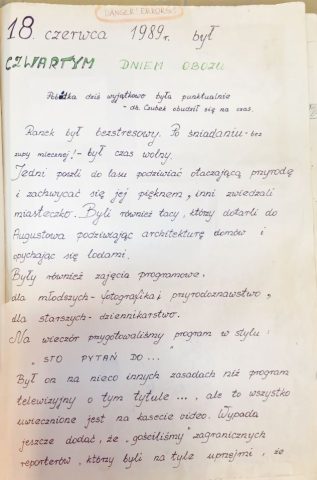 DANGER! ERRORS!
18. czerwca 1989r. był
CZWARTYM DNIEM OBOZU
Pobudka dziś wyjątkowo była punktualnie
- dh. Czubek obudził się na czas.
Ranek był bezstresowy. Po śniadaniu - bez
zupy mlecznej! - był czas wolny.
Jedni poszli do lasu podziwiać otaczającą przyrodę
i zachwycać się jej pięknem, inni zwiedzali
miasteczko. Byli również tacy, którzy dotarli do
Augustowa podziwiając architekturę domów i
opychając się lodami.
Były również zajęcia programowe,
dla młodszych - fotografika i przyrodoznawstwo,
dla starszych - dziennikarstwo.
Na wieczór przygotowaliśmy program w stylu:
" STO PYTAŃ DO ... "
Był on na nieco innych zasadach niż program
telewizyjny o tym tytule ..., ale to wszystko
uwiecznione jest na kasecie video. Wypada
jeszcze dodać, że "gościliśmy" zagranicznych
reporterów, którzy byli na tyle uprzejmi, że